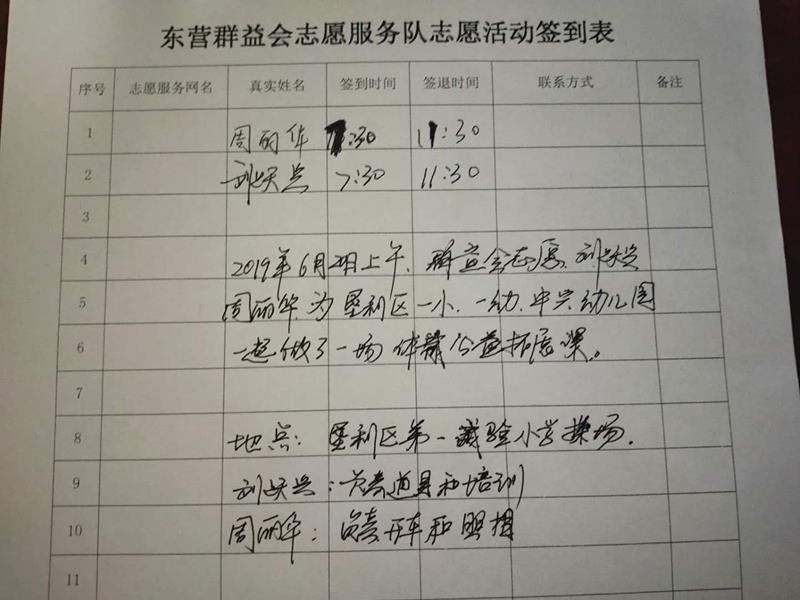 东营群益会志愿服务队志愿活动签到表
序号 志愿服务网名 真实姓名 签到时间 签退时间 联系方式 备注
1 周丽华 7:30 11:30
2 刘 7:30 11:30
3
4 2019年6月 上午,群益会志愿 刘
5 周丽华 为垦利区一小、一幼、中兴幼儿园
6 一起做了一场体 公益拓展课。
7
8 地点:垦利区第一试验小学操场.
9 刘 :负责道具和培训
10 周丽华:负责开车和照相
11